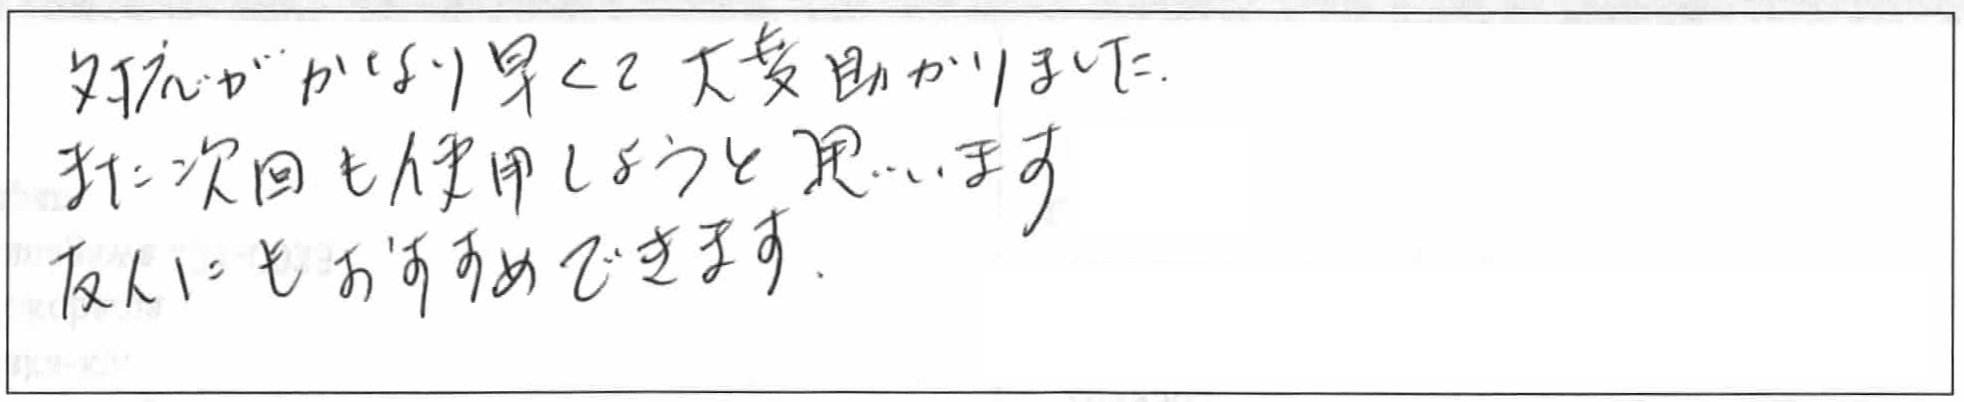 対応がかなり早くて大変助かりました.
また次回も使用しようと思います
友人にもおすすめできます.